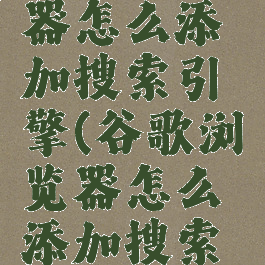 器怎么添
加搜索引
擎(谷歌浏
览器怎么
添加搜索